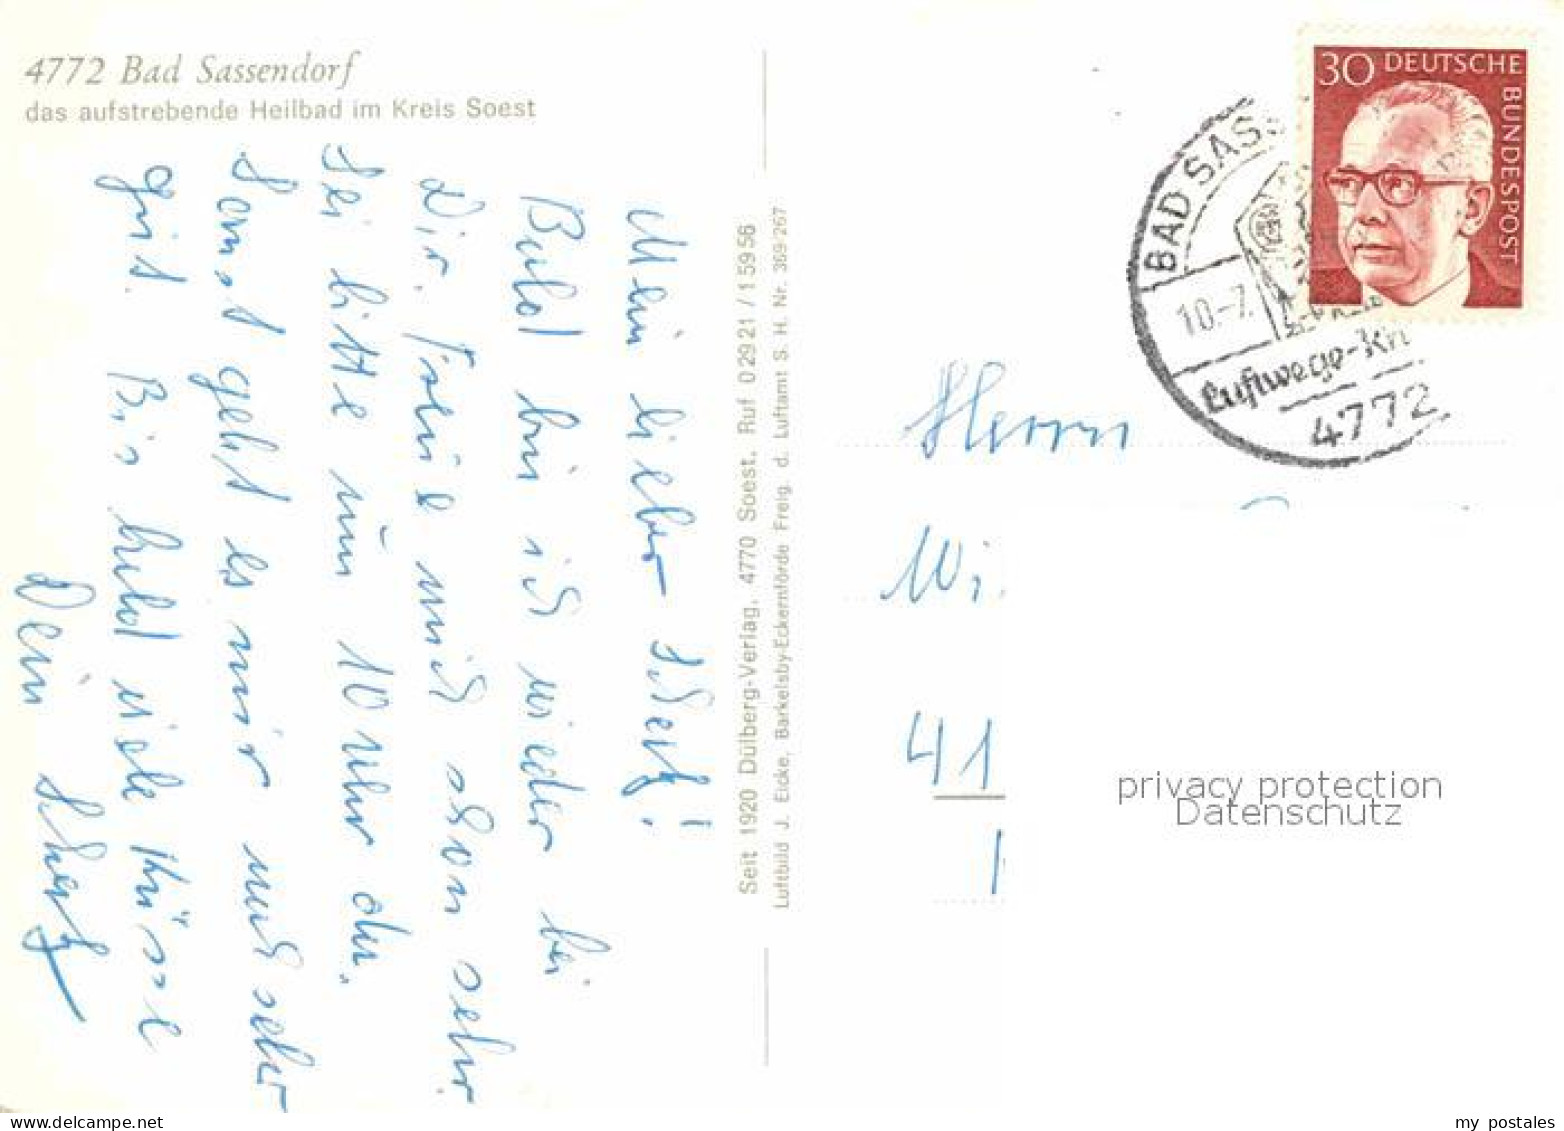 4772 Bad Sassendorf
das aufstrebende Heilbad im Kreis Soest
Mein lieber Schatz!
Bald bin ich wieder bei
Dir. Freue mich schon sehr
Sei bitte um 10 Uhr da.
Sonst geht es mir noch sehr
gut. Bis bald viele Küsse
Dein Schatz
Seit 1920 Dülberg-Verlag, 4770 Soest, Ruf 0 29 21 / 1 59 56
Luftbild J. Eicke, Barkelsby-Eckernförde Freig. d. Luftamt S. H. Nr. 369/267
30 DEUTSCHE
BUNDESPOST
BAD SASS
10.-7.
Luftwege-Kn
4772
Herrn
Wi
41
privacy protection
Datenschutz
my postales